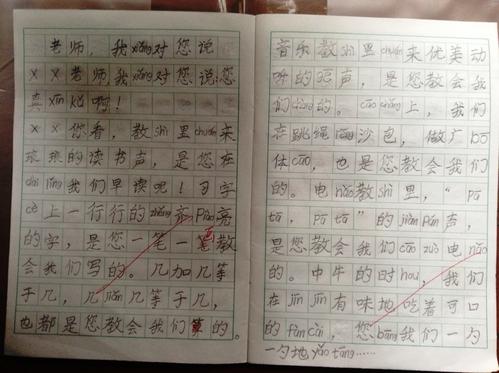 老师，我xiǎng对您说
××老师我xiǎng对您说：您
真xīn kǔ啊！
××你看，教shì里chuán来
琅琅的读书声，是您在
dài lǐng我们早读呢！习字
cè上一行行的zhěng齐piào亮
的字，是您一笔一笔教
会我们写的。几加几等
于几，几jiǎn几等于几，
也都是您教会我们算的。
音乐教shì里chuán来优美动
听的歌声，是您教会我
们chàng的。cāo chǎng上，我们
在跳绳 沙包，做广bō
体cāo，也是您教会我们
的。电nǎo教shì里，“pā
tā，pā tā”的jiàn pán声，
是您教会我们cāo zuò电nǎo
的。中午的时hou，我们
在jīn jīn有味地吃着可口
的fàn cài，您bāng我们一勺
一勺地yǎo tāng……